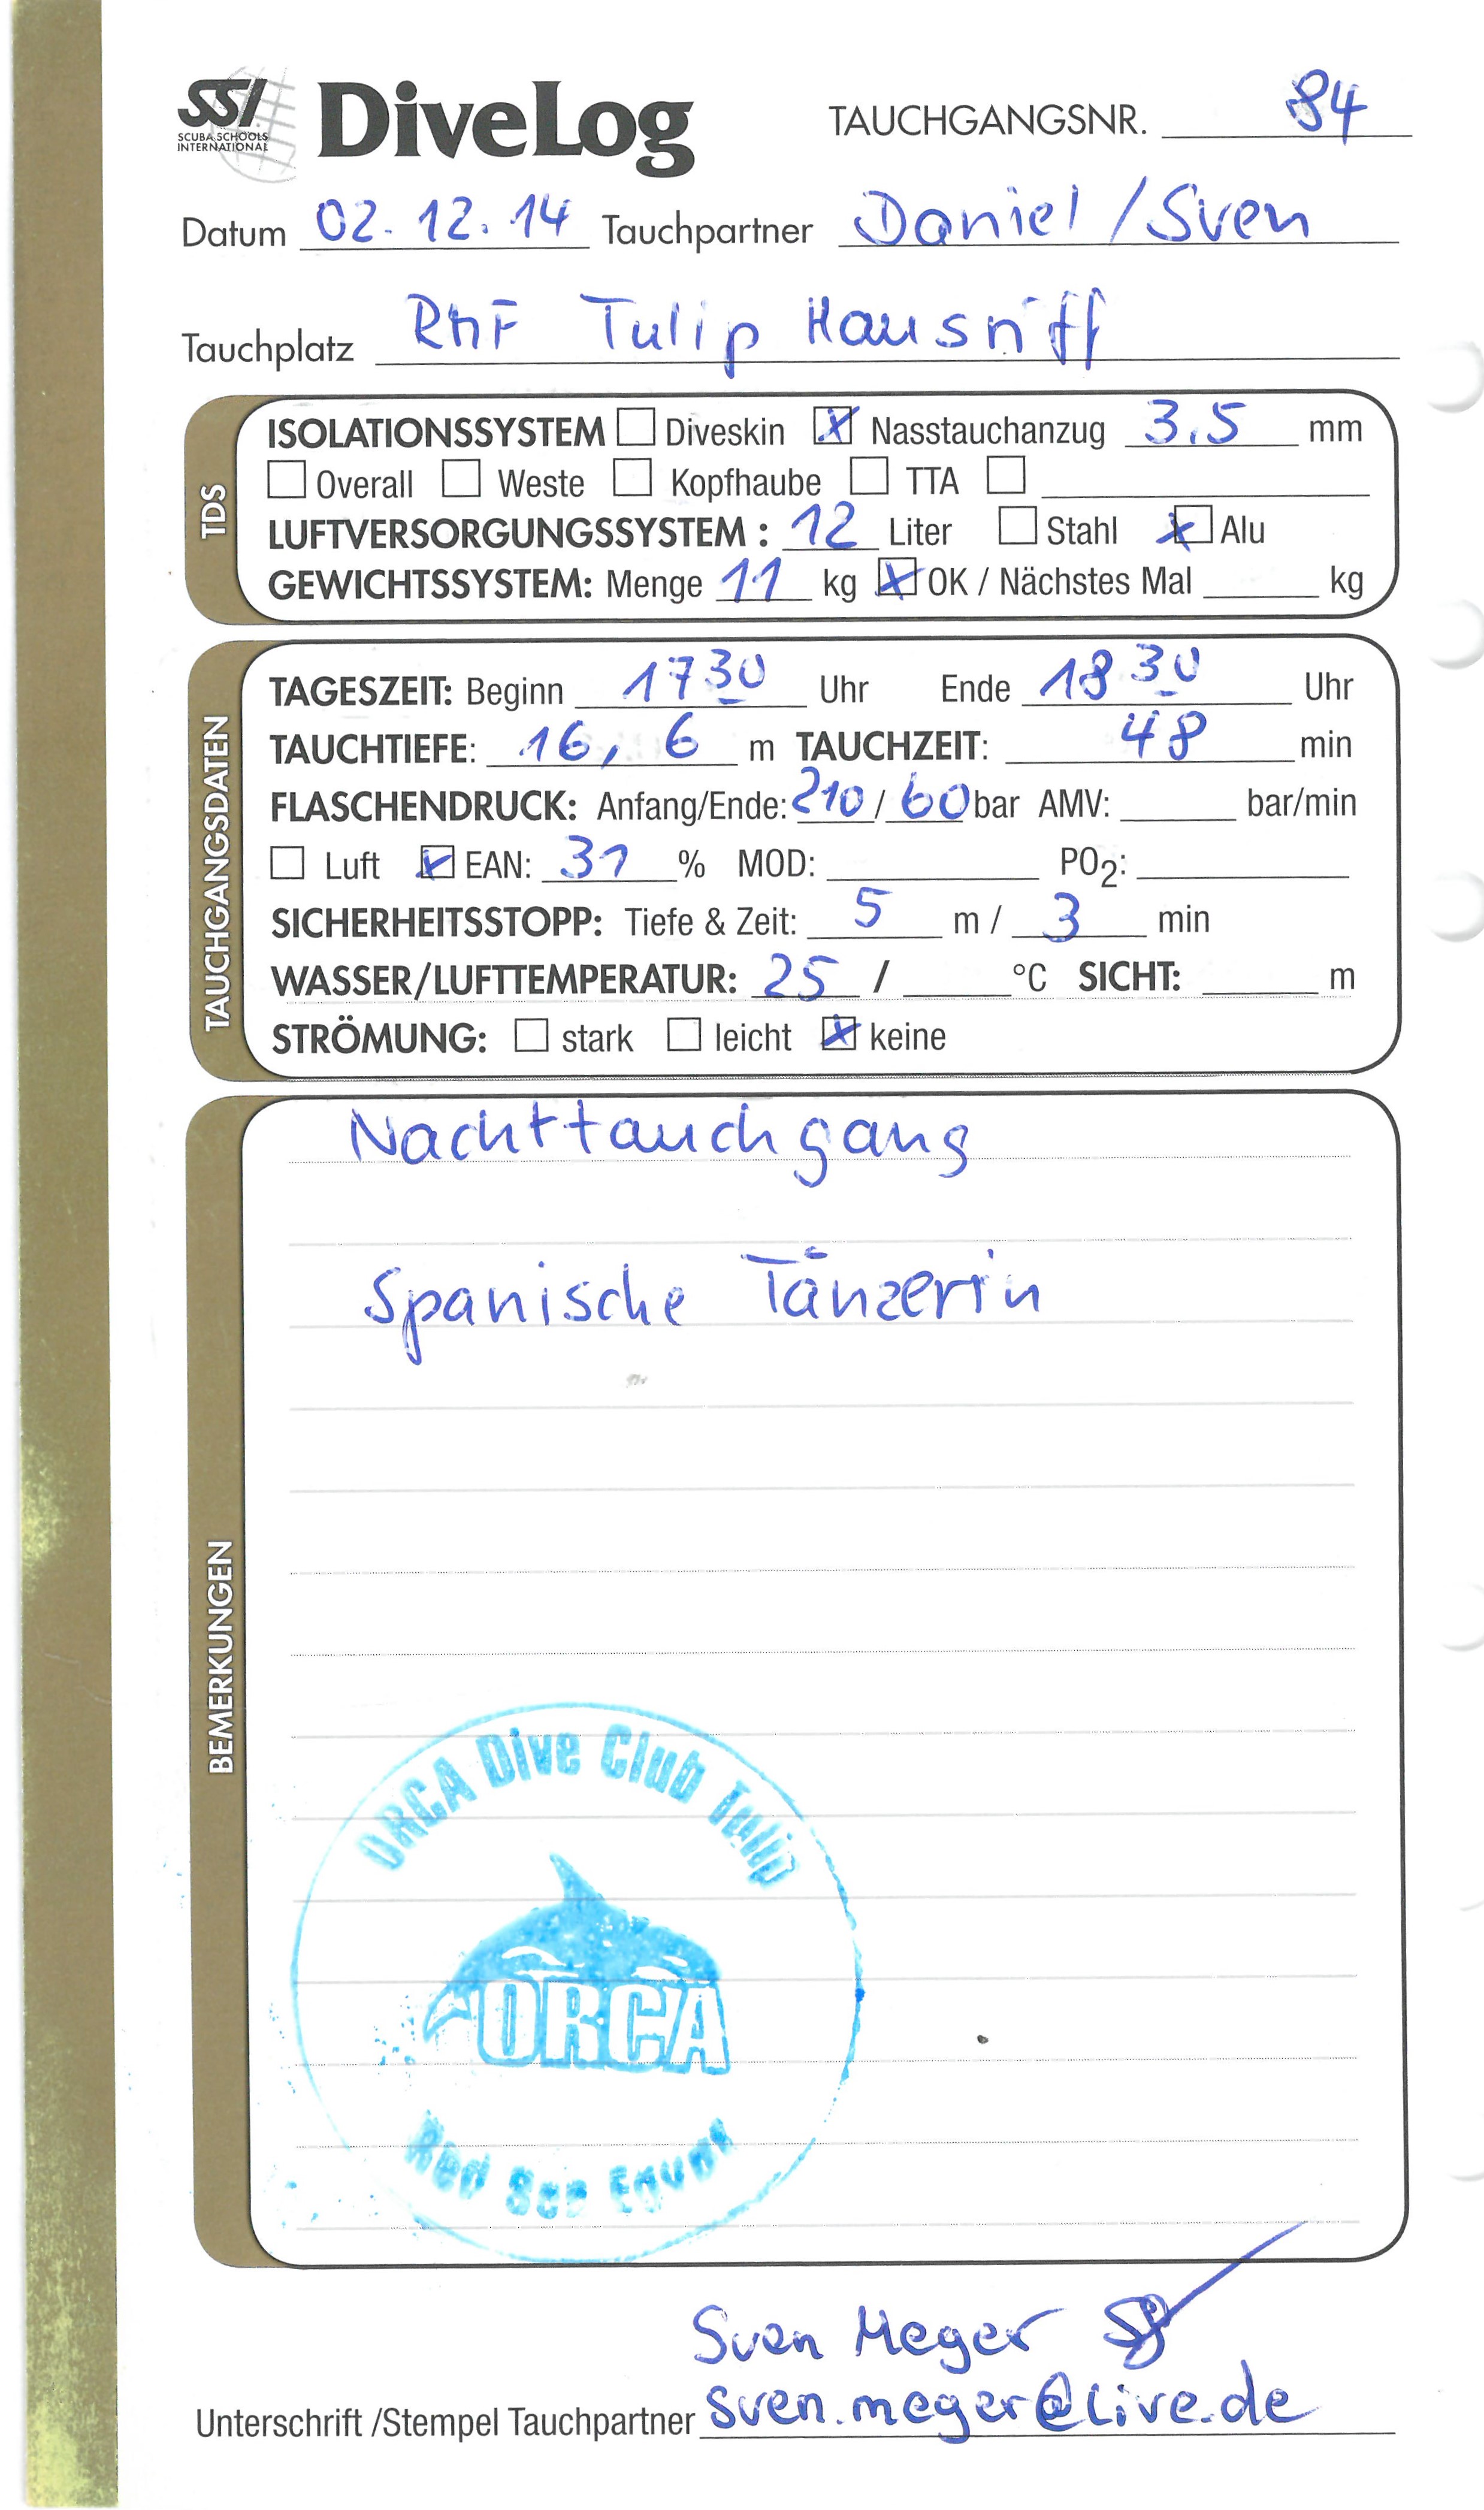 SSI
SCUBA SCHOOLS
INTERNATIONAL
DiveLog
TAUCHGANGSNR. 84
Datum 02.12.14 Tauchpartner Daniel / Sven
Tauchplatz Riff Tulip Hausriff
TDS
ISOLATIONSSYSTEM Diveskin Nasstauchanzug 3.5 mm
Overall Weste Kopfhaube TTA
LUFTVERSORGUNGSSYSTEM : 12 Liter Stahl Alu
GEWICHTSSYSTEM: Menge 11 kg OK / Nächstes Mal kg
TAUCHGANGSDATEN
TAGESZEIT: Beginn 17 30 Uhr Ende 18 30 Uhr
TAUCHTIEFE: 16,6 m TAUCHZEIT: 48 min
FLASCHENDRUCK: Anfang/Ende: 210/60 bar AMV: bar/min
Luft EAN: 31 % MOD: PO2:
SICHERHEITSSTOPP: Tiefe & Zeit: 5 m / 3 min
WASSER/LUFTTEMPERATUR: 25 / °C SICHT: m
STRÖMUNG: stark leicht keine
BEMERKUNGEN
Nachttauchgang
Spanische Tänzerin
ORCA Dive Club Tulip
ORCA
Red Sea Egypt
Sven Meger
Unterschrift /Stempel Tauchpartner sven.meger@live.de